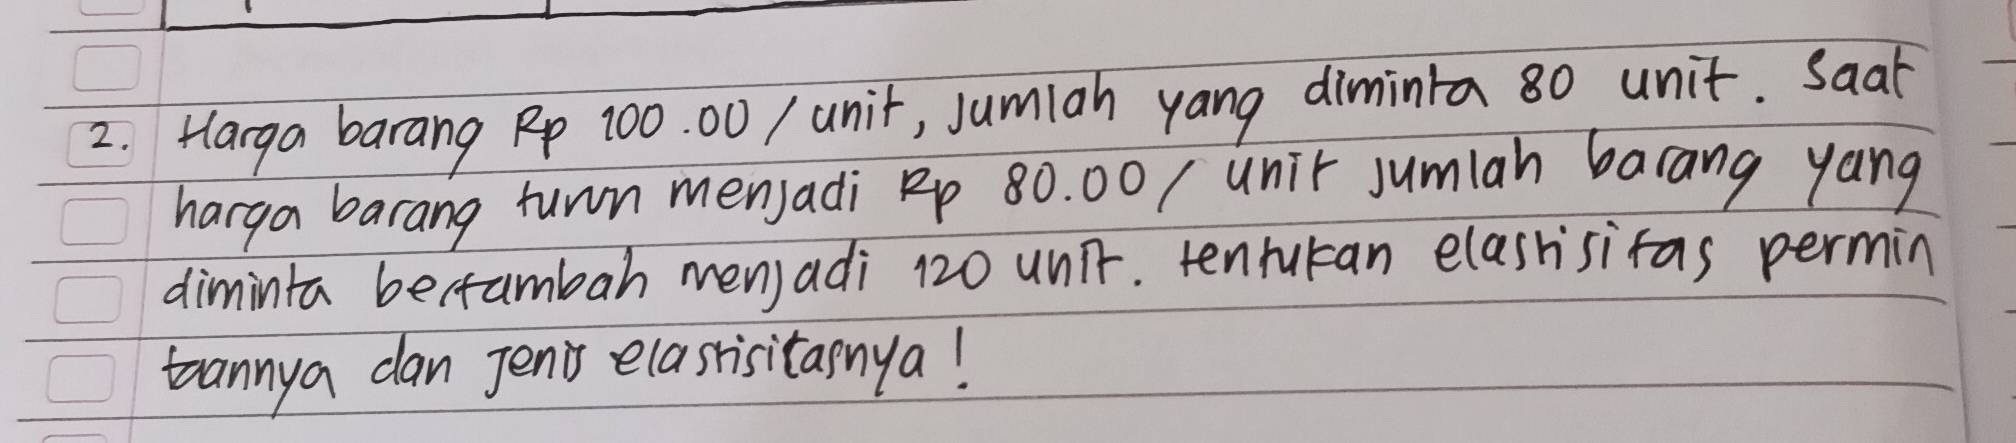 2. Harga barang Rp 100.00 / unit, Jumlah yang diminta 80 unit. Saat
harga barang turun menjadi Rp 80.00 / unit jumlah barang yang
diminta bertambah menjadi 120 unit. tentukan elastisitas permin
taannya dan Jenis elastisitasnya !